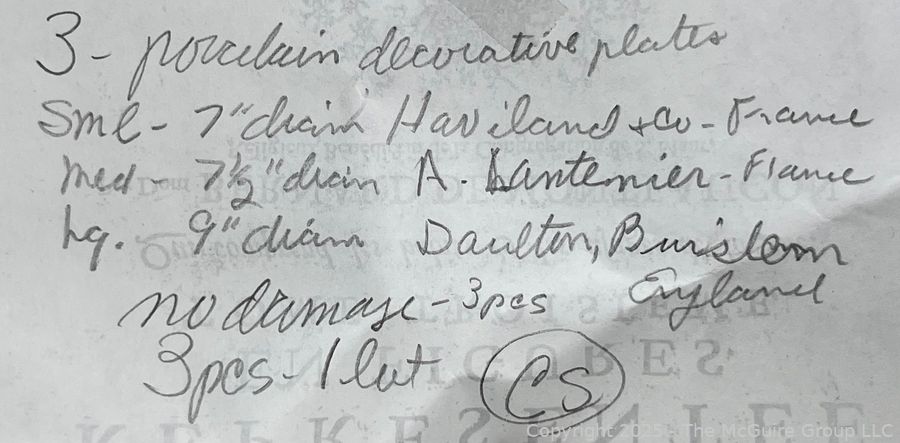 3 - porcelain decorative plates
Sml - 7" diam Haviland + Co - France
Med - 7½" diam A. Lanternier - France
Lg. 9" diam Daulton, Burslem
England
no damage - 3pcs
3pcs - 1 lot CS
Copyright 2025 - The McGuire Group LLC